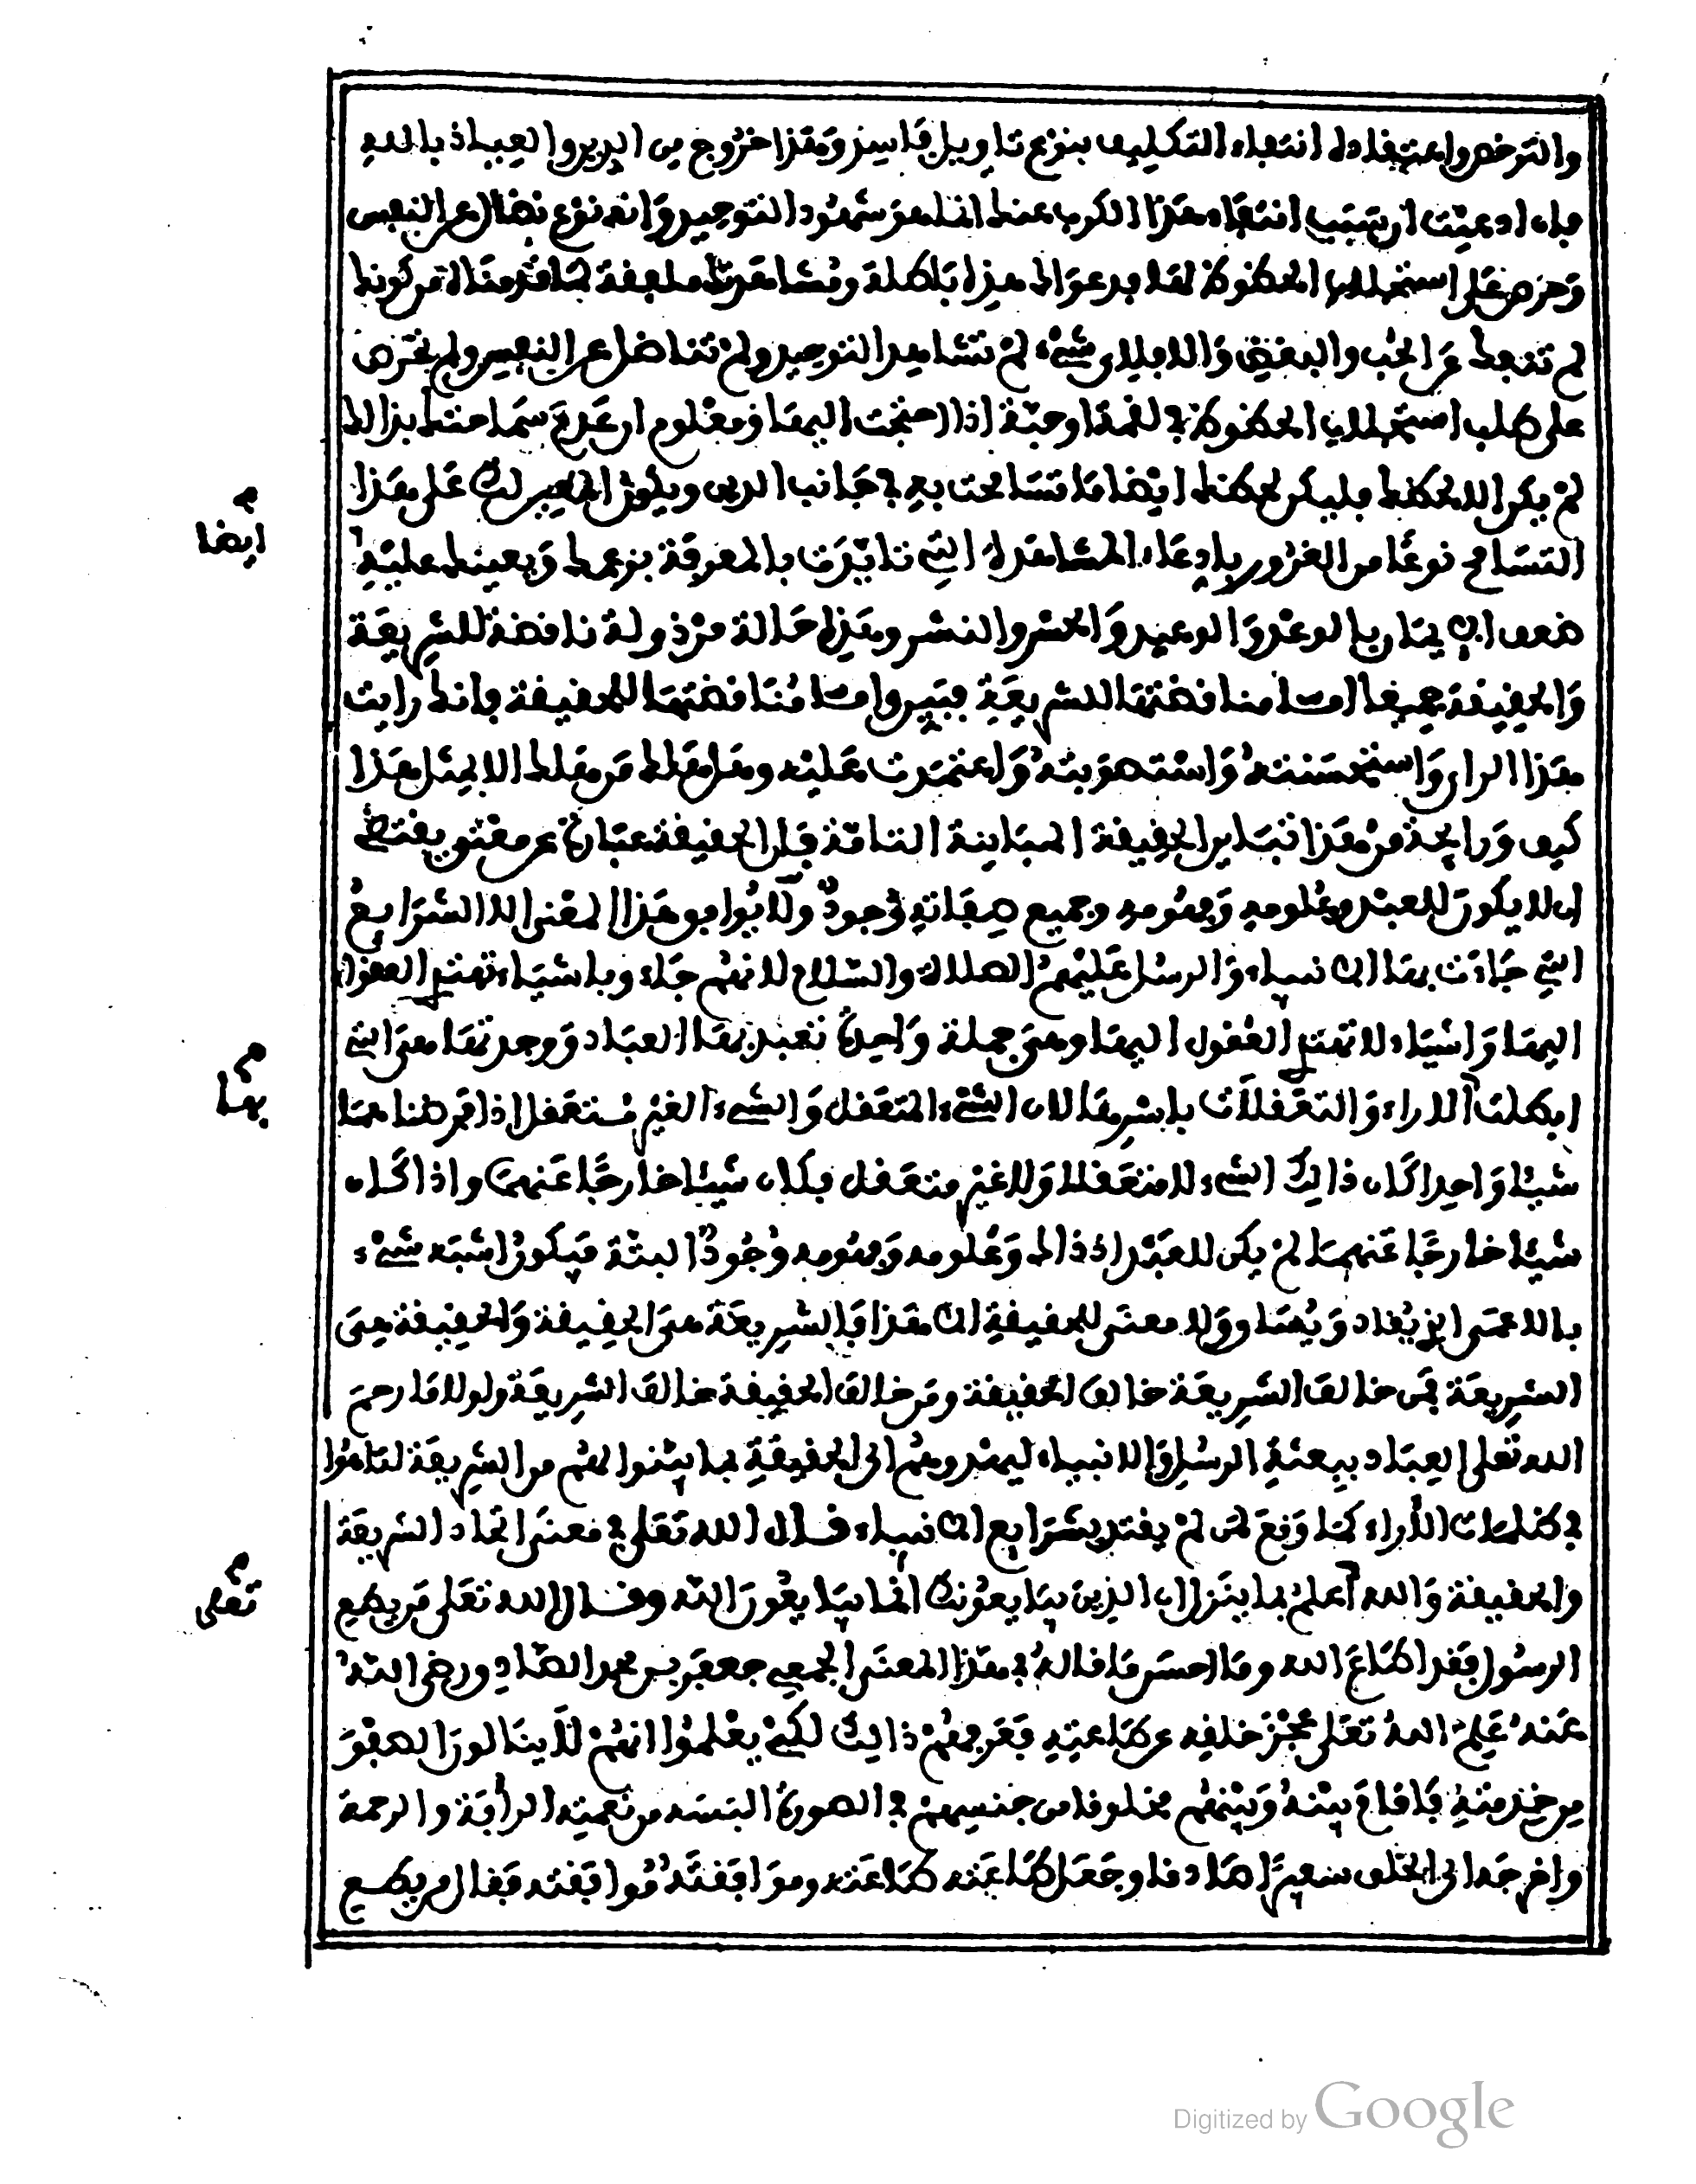 والترخص واعتقادك انتفاء التكليف بنوع تاويل فاسد وهذا خروج من الدين والعياذ بالله
فان ادعيت ان سبب انتفاء هذا الكرب عنك انما هو شهود التوحيد وانه نوع نضال عن النفس
وحرص على استجلاب الحظوظ لها فدعواك هذه باطلة ومشاهدتك ملفقة لشاهد هناك من كونك
لم تنفك عن الحب والبغض والا فلاي شيء لم تشاهد التوحيد ولم تناضل عن النفس ولم تحرص
على طلب استجلاب الحظوظ في لقمة او حبة اذا احتجت اليها ومعلوم ان عدم سماحتك بذالك
لم يكن الا لحظك فليكن لحظك ايضا ما تسامحت به في جانب الدين ويكون المعين لك على هذا
ايضا
التسامح نوعا من الغرور بادعاء المشاهدة التي تايدت بالمعرفة بزعمك ويعينك عليه
ضعف الايمان بالوعد والوعيد والحشر والنشر وهذه حالة مرذولة ناقضة للشريعة
والحقيقة جميعا اما مناقضتها للشريعة فبين واما مناقضتها للحقيقة فانك رايت
هذا الراي واستحسنته واستصوبته واعتمدت عليه وهل هلك من هلك الا بمثل هذا
كيف ورايحة من هذا تباين الحقيقة المباينة التامة فان الحقيقة عبارة عن معنى يقتضي
ان لا يكون للعبد وعلومه وفهومه وجميع صفاته وجود ولا يوافق هذا المعنى الا الشرايع
التي جاءت بها الانبياء والرسل عليهم الصلاة والسلام لانهم جاءوا باشياء تهتدي العقول
اليها واشياء لا تهتدي العقول اليها وهي جملة واحدة تعبد بها العباد فوجدتها هي التي
بها
ابطلت الاراء والتعقلات باسرها لان الشيء المتعقل والشيء الغير متعقل اذا فرضناهما
شيئا واحدا كان ذالك الشيء لا متعقلا ولا غير متعقل فكان شيئا خارجا عنهما واذا كان
شيئا خارجا عنهما لم يكن للعبد اذ ذاك وعلومه وفهومه وجود البتة فيكون اشبه شيء
بالاعمى الذي يقاد ويساق ولا معنى للحقيقة الا هذا فالشريعة هي الحقيقة والحقيقة هي
الشريعة فمن خالف الشريعة خالف الحقيقة ومن خالف الحقيقة خالف الشريعة ولولا ما رحم
الله تعلى العباد ببعثة الرسل والانبياء ليهدوهم الى الحقيقة بما بينوا لهم من الشريعة لتاهوا
في ظلمات الأراء كما وقع لمن لم يقتد بشرايع الانبياء قال الله تعلى في معنى اتحاد الشريعة
والحقيقة والله أعلم بما ينزل ان الذين يبايعونك انما يبايعون الله وقال الله تعلى من يطع
تعلى
الرسول فقد اطاع الله وما احسن ما قاله في هذا المعنى الجمعي جعفر بن محمد الصادق رضي الله
عنه علم الله تعلى عجز خلقه عن طاعته فعرفهم ذالك لكي يعلموا انهم لا ينالون الصفو
من خدمته فاقام بينه وبينهم مخلوقا من جنسهم في الصورة البسه من نعمته الرأفة والرحمة
واخرجه الى الخلق سفيرا صادقا وجعل طاعته طاعته وموافقته موافقته فقال من يطع